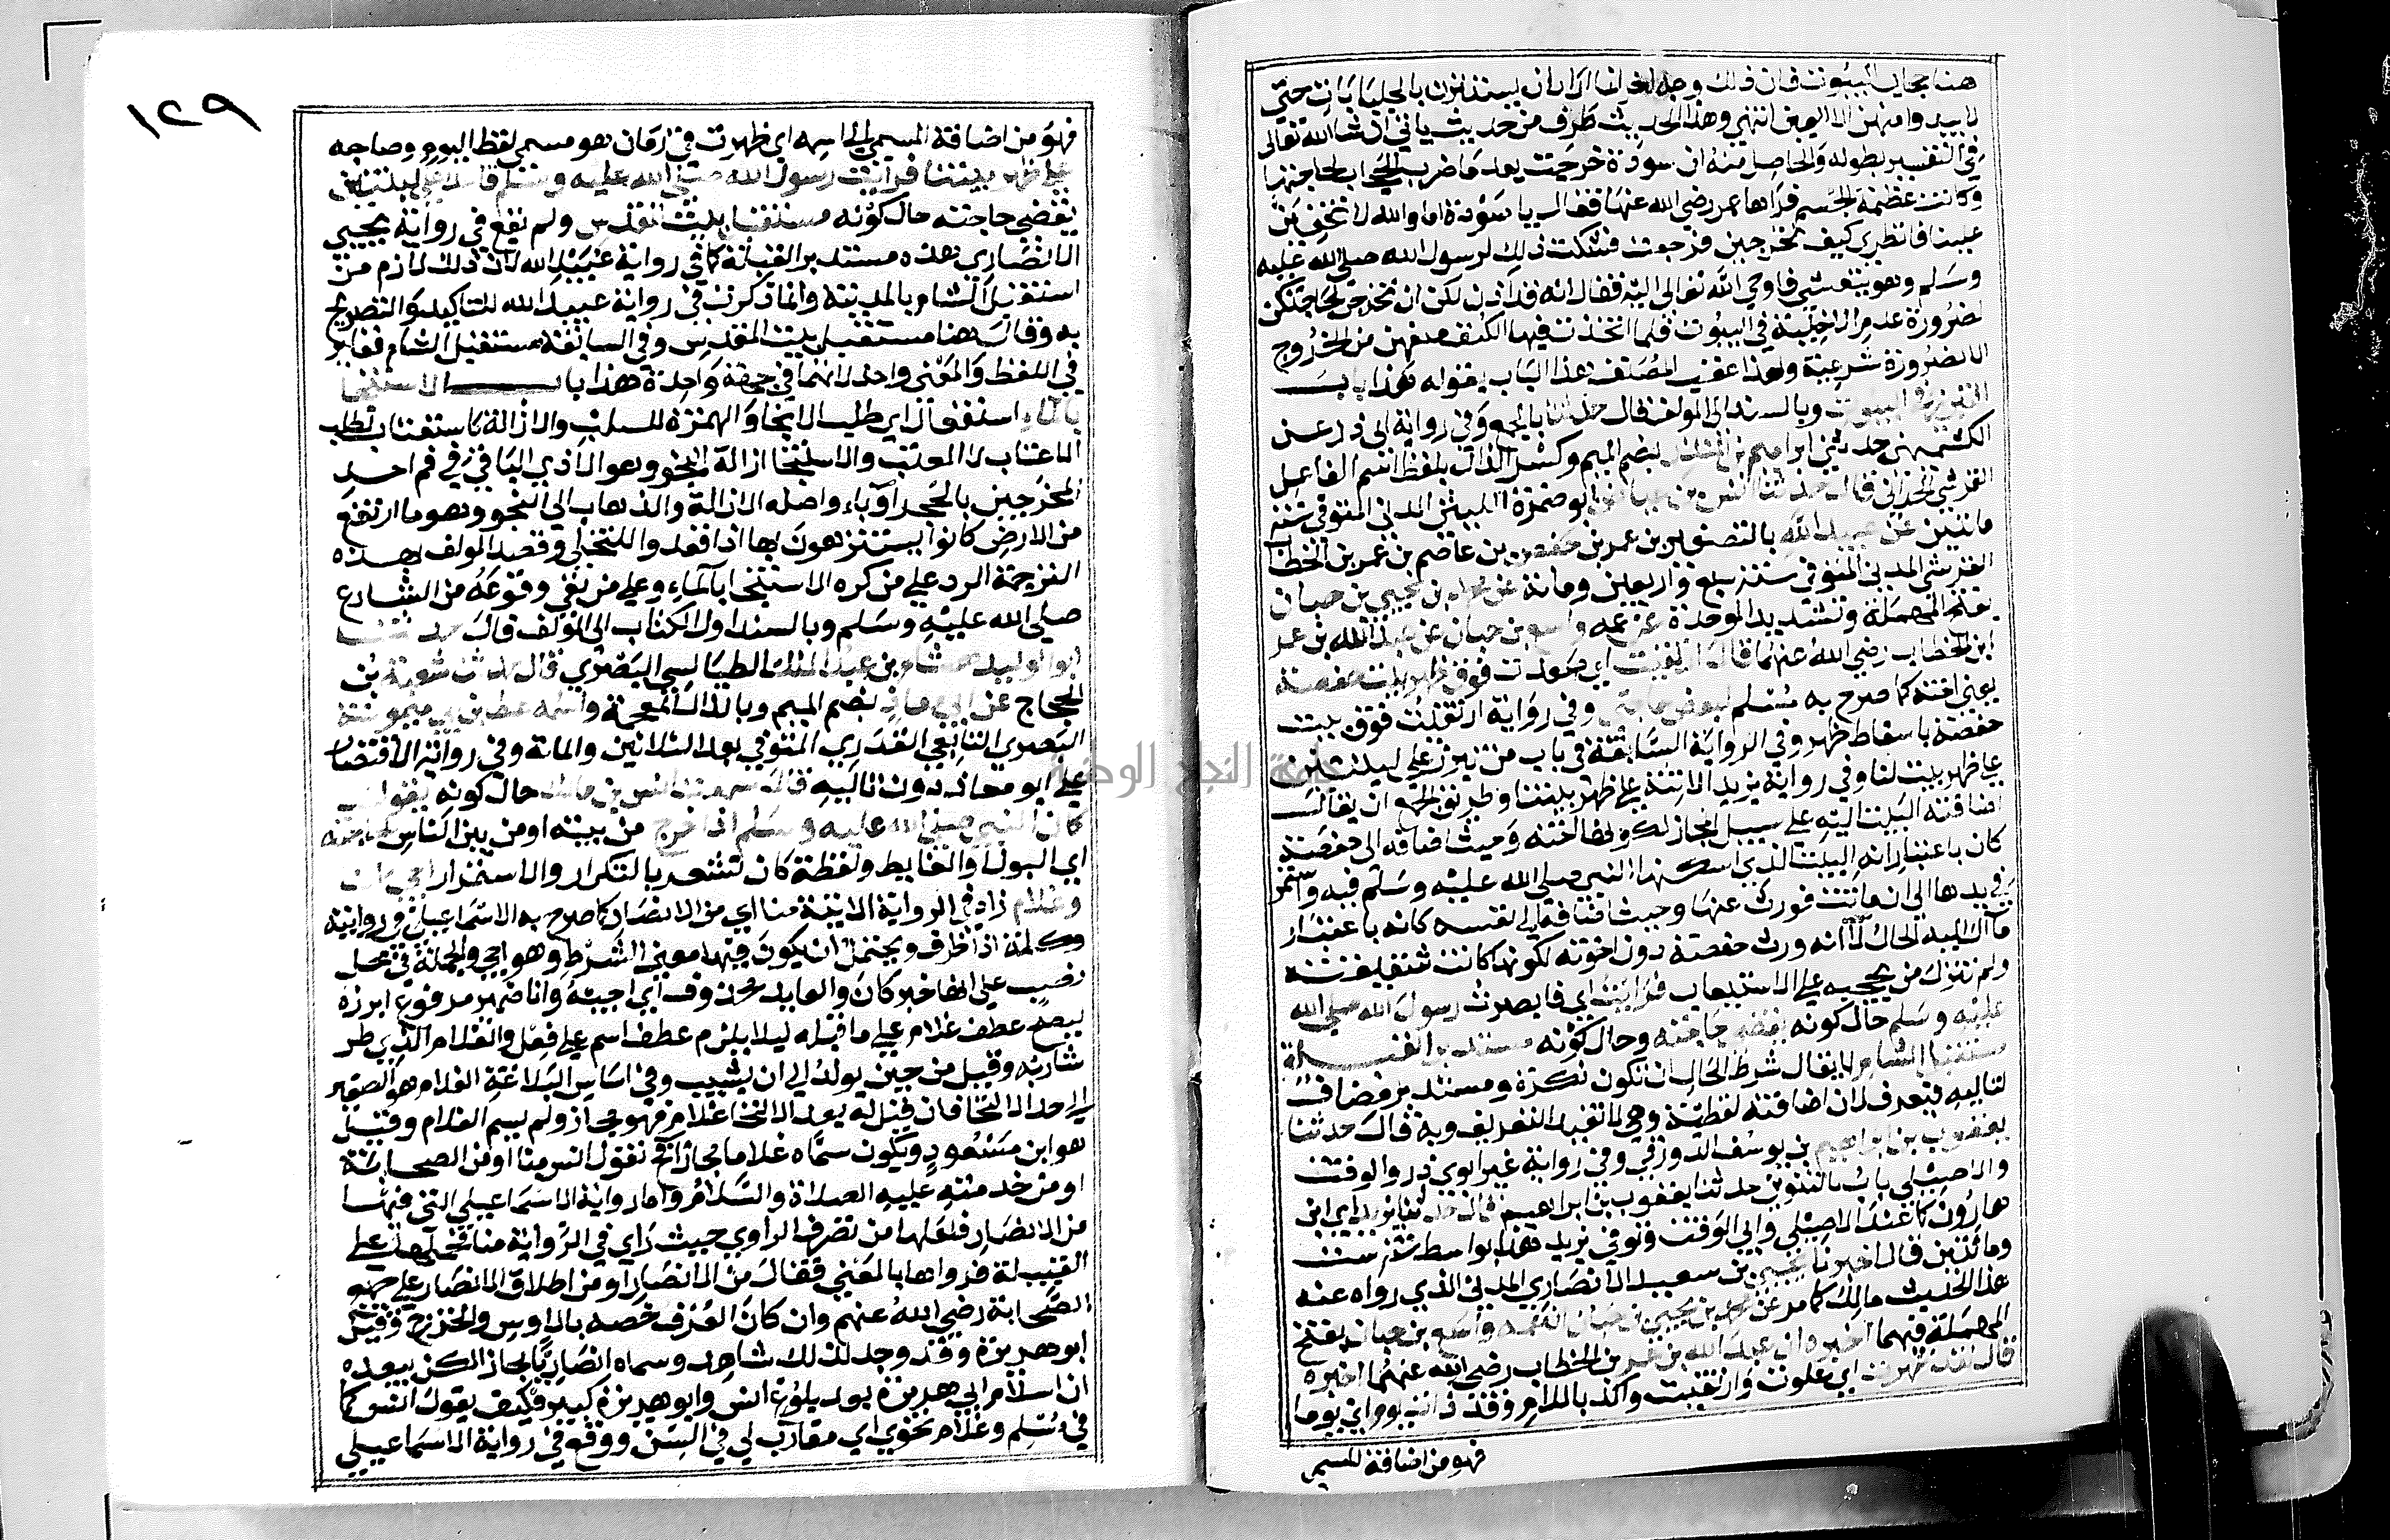 هنا حجاب البيوت فان ذلك وجه اخر انما اراد ان يستترن بالجلباب حتي
لا يبدوا منهن الا العين انتهي وهذا الحديث طرف من حديث ياتي ان شا الله تعالى
في التفسير بطوله والحاصل منه ان سودة خرجت بعد ما ضرب الحجاب لحاجتها
وكانت عظيمة الجسم فراها عمر رضي الله عنها فقال يا سودة اما والله لا تخفين
علينا فانظري كيف تخرجين فرجعت فشكت ذلك لرسول الله صلي الله عليه
وسلم وهو يتعشي فاوحي الله تعالى اليه فقال انه قد اذن لكن ان تخرجن لحاجتكن
لضرورة عدم الاخلية في البيوت فلما اتخذت فيها الكنف منعهن من الخروج
الا لضرورة شرعية ولهذا عقب المصنف هذا الباب بقوله هذا باب
التبرز في البيوت وبالسند الى المولف قال حدثنا بالجمع وفي رواية ابي ذر عن
الكشميهني حدثني ابراهيم بن المنذر بضم الميم وكسر الذال بلفظ اسم الفاعل
القرشي الحزامي قال حدثنا انس بن عياض ابو ضمرة الليثي المدني المتوفي سنة
مائتين عن عبيد الله بالتصغير بن عمر بن حفص بن عاصم بن عمر بن الخطاب
القرشي المدني المتوفي سنة سبع واربعين ومائة عن محمد بن يحيي بن حبان
بفتح المهملة وتشديد الموحدة عن عمه واسع بن حبان عن عبد الله بن عمر
ابن الخطاب رضي الله عنهما قال ارتقيت اي صعدت فوق ظهر بيت حفصة
يعني اخته كما صرح به مسلم لبعض حاجتي وفي رواية ارتقيت فوق بيت
حفصة باسقاط ظهر وفي الرواية السابقة في باب من تبرز علي لبنتين
علي ظهر بيت لنا وفي رواية يزيد الاتية علي ظهر بيتنا وطريق الجمع ان يقال
اضافته البيت اليه علي سبيل المجاز لكونها اخته وحيث اضافه الى حفصة
كان باعتبار انه البيت الذي اسكنها النبي صلي الله عليه وسلم فيه واستمر
في يدها الى ان ماتت فورث عنها وحيث اضافه الى نفسه كانه باعتبار
ما آل اليه الحال لانه ورث حفصة دون اخوته لكونها كانت شقيقته
ولم تترك من يحجبه علي الاستيعاب فرايت اي فابصرت رسول الله صلي الله
عليه وسلم حال كونه يقضي حاجته وحال كونه مستدبر القبلة
مستقبل الشام لا يقال شرط الحال ان تكون نكرة ومستدبر مضاف
لتاليه فتعرف لان اضافته لفظية وهي لا تفيد التعريف وبه قال حدثنا
يعقوب بن ابراهيم بن يوسف الدورقي وفي رواية غير ابوي ذر والوقت
والاصيلي باب بالتنوين حدثنا يعقوب بن ابراهيم قال حدثنا يزيد اي ابن
هارون كما عند الاصيلي وابي الوقت وتوفي يزيد هذا بواسط سنة ست
ومائتين قال اخبرنا يحيي بن سعيد الانصاري المدني الذي رواه عنه
هذا الحديث مالك كما مر عن محمد بن يحيي بن حبان ان عمه واسع بن حبان بفتح
المهملة فيهما اخبره ان عبد الله بن عمر بن الخطاب رضي الله عنهما اخبره
قال لقد ظهرت اي علوت وارتقيت واكد باللام وقد ذات يوم اي يوما
فهو من اضافة المسمي
١٢٩
فهو من اضافة المسمي الى اسمه اي ظهرت في زمان هو مسمي لفظ اليوم وصاحبه
علي ظهر بيتنا فرايت رسول الله صلي الله عليه وسلم قاعدا علي لبنتين
يقضي حاجته حال كونه مستقبل بيت المقدس ولم يقع في رواية يحيي
الانصاري هذه مستدبر القبلة كما في رواية عبيد الله لان ذلك لازم من
استقبل الشام بالمدينة وانما ذكرت في رواية عبيد الله للتاكيد والتصريح
به وقال هنا مستقبل بيت المقدس وفي السابقة مستقبل الشام فغاير
في اللفظ والمعني واحد لانهما في جهة واحدة هذا باب الاستنجا
بالماء استفعال اي طلب الانجا والهمزة للسلب والازالة كاستعتاب لطلب
الاعتاب لا العتب والاستنجا ازالة النجو وهو الاذي الباقي في فم احد
المخرجين بالحجر او بماء واصله الازالة والذهاب الى النجو وهو ما ارتفع
من الارض كانوا يستترون بها اذا قعدوا للتخلي وقصد المولف بهذه
الترجمة الرد علي من كره الاستنجا بالماء وعلي من نفي وقوعه من الشارع
صلي الله عليه وسلم وبالسند اول الكتاب الى المولف قال حدثنا
ابو الوليد هشام بن عبد الملك الطيالسي البصري قال حدثنا شعبة بن
الحجاج عن ابي معاذ بضم الميم وبالذال المعجمة واسمه عطا بن ابي ميمونة
البصري التابعي القدري المتوفي بعد الثلاثين والمائة وفي رواية الاقتصار
علي ابو معاذ دون تاليه قال سمعت انس بن مالك حال كونه يقول
كان النبي صلي الله عليه وسلم اذا خرج من بيته او من بين الناس لحاجته
اي البول او الغايط ولفظة كان تشعر بالتكرار والاستمرار اجي انا
وغلام زاد في الرواية الاتية منا اي من الانصار كما صرح به الاسماعيلي في روايته
وكلمة اذا ظرف ويحتمل ان يكون فيها معني الشرط وهو اجي والجملة في محل
نصب علي انها خبر كان والعايد محذوف اي اجيئه وانا ضمير مرفوع ابرزه
ليصح عطف غلام علي ما قبله ليلا يلزم عطف اسم علي فعل والغلام الذي طر
شاربه وقيل من حين يولد الى ان يشيب وفي اساس البلاغة الغلام هو الصغير
الى حد الالتحا فان قيل له بعد الالتحا غلام فهو مجاز ولم يسم الغلام وقيل
هو ابن مسعود ويكون سماه غلاما مجازا فح نقول انس منا او من الصحابة
او من خدمته عليه الصلاة والسلام واما رواية الاسماعيلي التي فيها
من الانصار فلعلها من تصرف الراوي حيث راي في الرواية منا فحملها علي
القبيلة فرواها بالمعني فقال من الانصار او من اطلاق الانصار علي جميع
الصحابة رضي الله عنهم وان كان العرف خصه بالاوس والخزرج وقيل
ابو هريرة وقد وجد لذلك شاهد وسماه انصاريا مجازا لكن يبعده
ان اسلام ابي هريرة بعد بلوغ انس وابو هريرة كبير فكيف يقول انس كما
في مسلم وغلام نحوي اي مقارب لي في السن ووقع في رواية الاسماعيلي
جامعة النجاح الوطنية